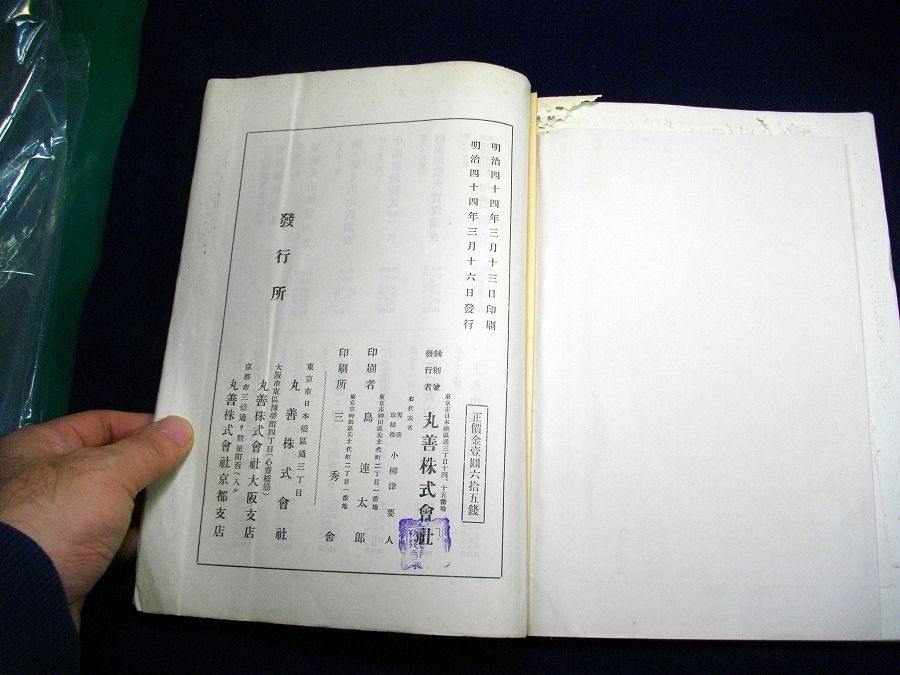 明治四十四年三月十三日印刷
明治四十四年三月十六日發行
正價金壹圓六拾五錢
飜刻兼
發行者
東京市日本橋區通三丁目十四、十五番地
丸善株式會社
右代表者
專務
取締役
小柳津要人
東京市神田區美土代町二丁目一番地
印刷者 島連太郎
東京市神田區美土代町二丁目一番地
印刷所 三秀舍
發行所
東京市日本橋區通三丁目
丸善株式會社
大阪市東區博勞町四丁目(心齋橋筋)
丸善株式會社大阪支店
京都市三條通リ麩屋町西ヘ入ル
丸善株式會社京都支店